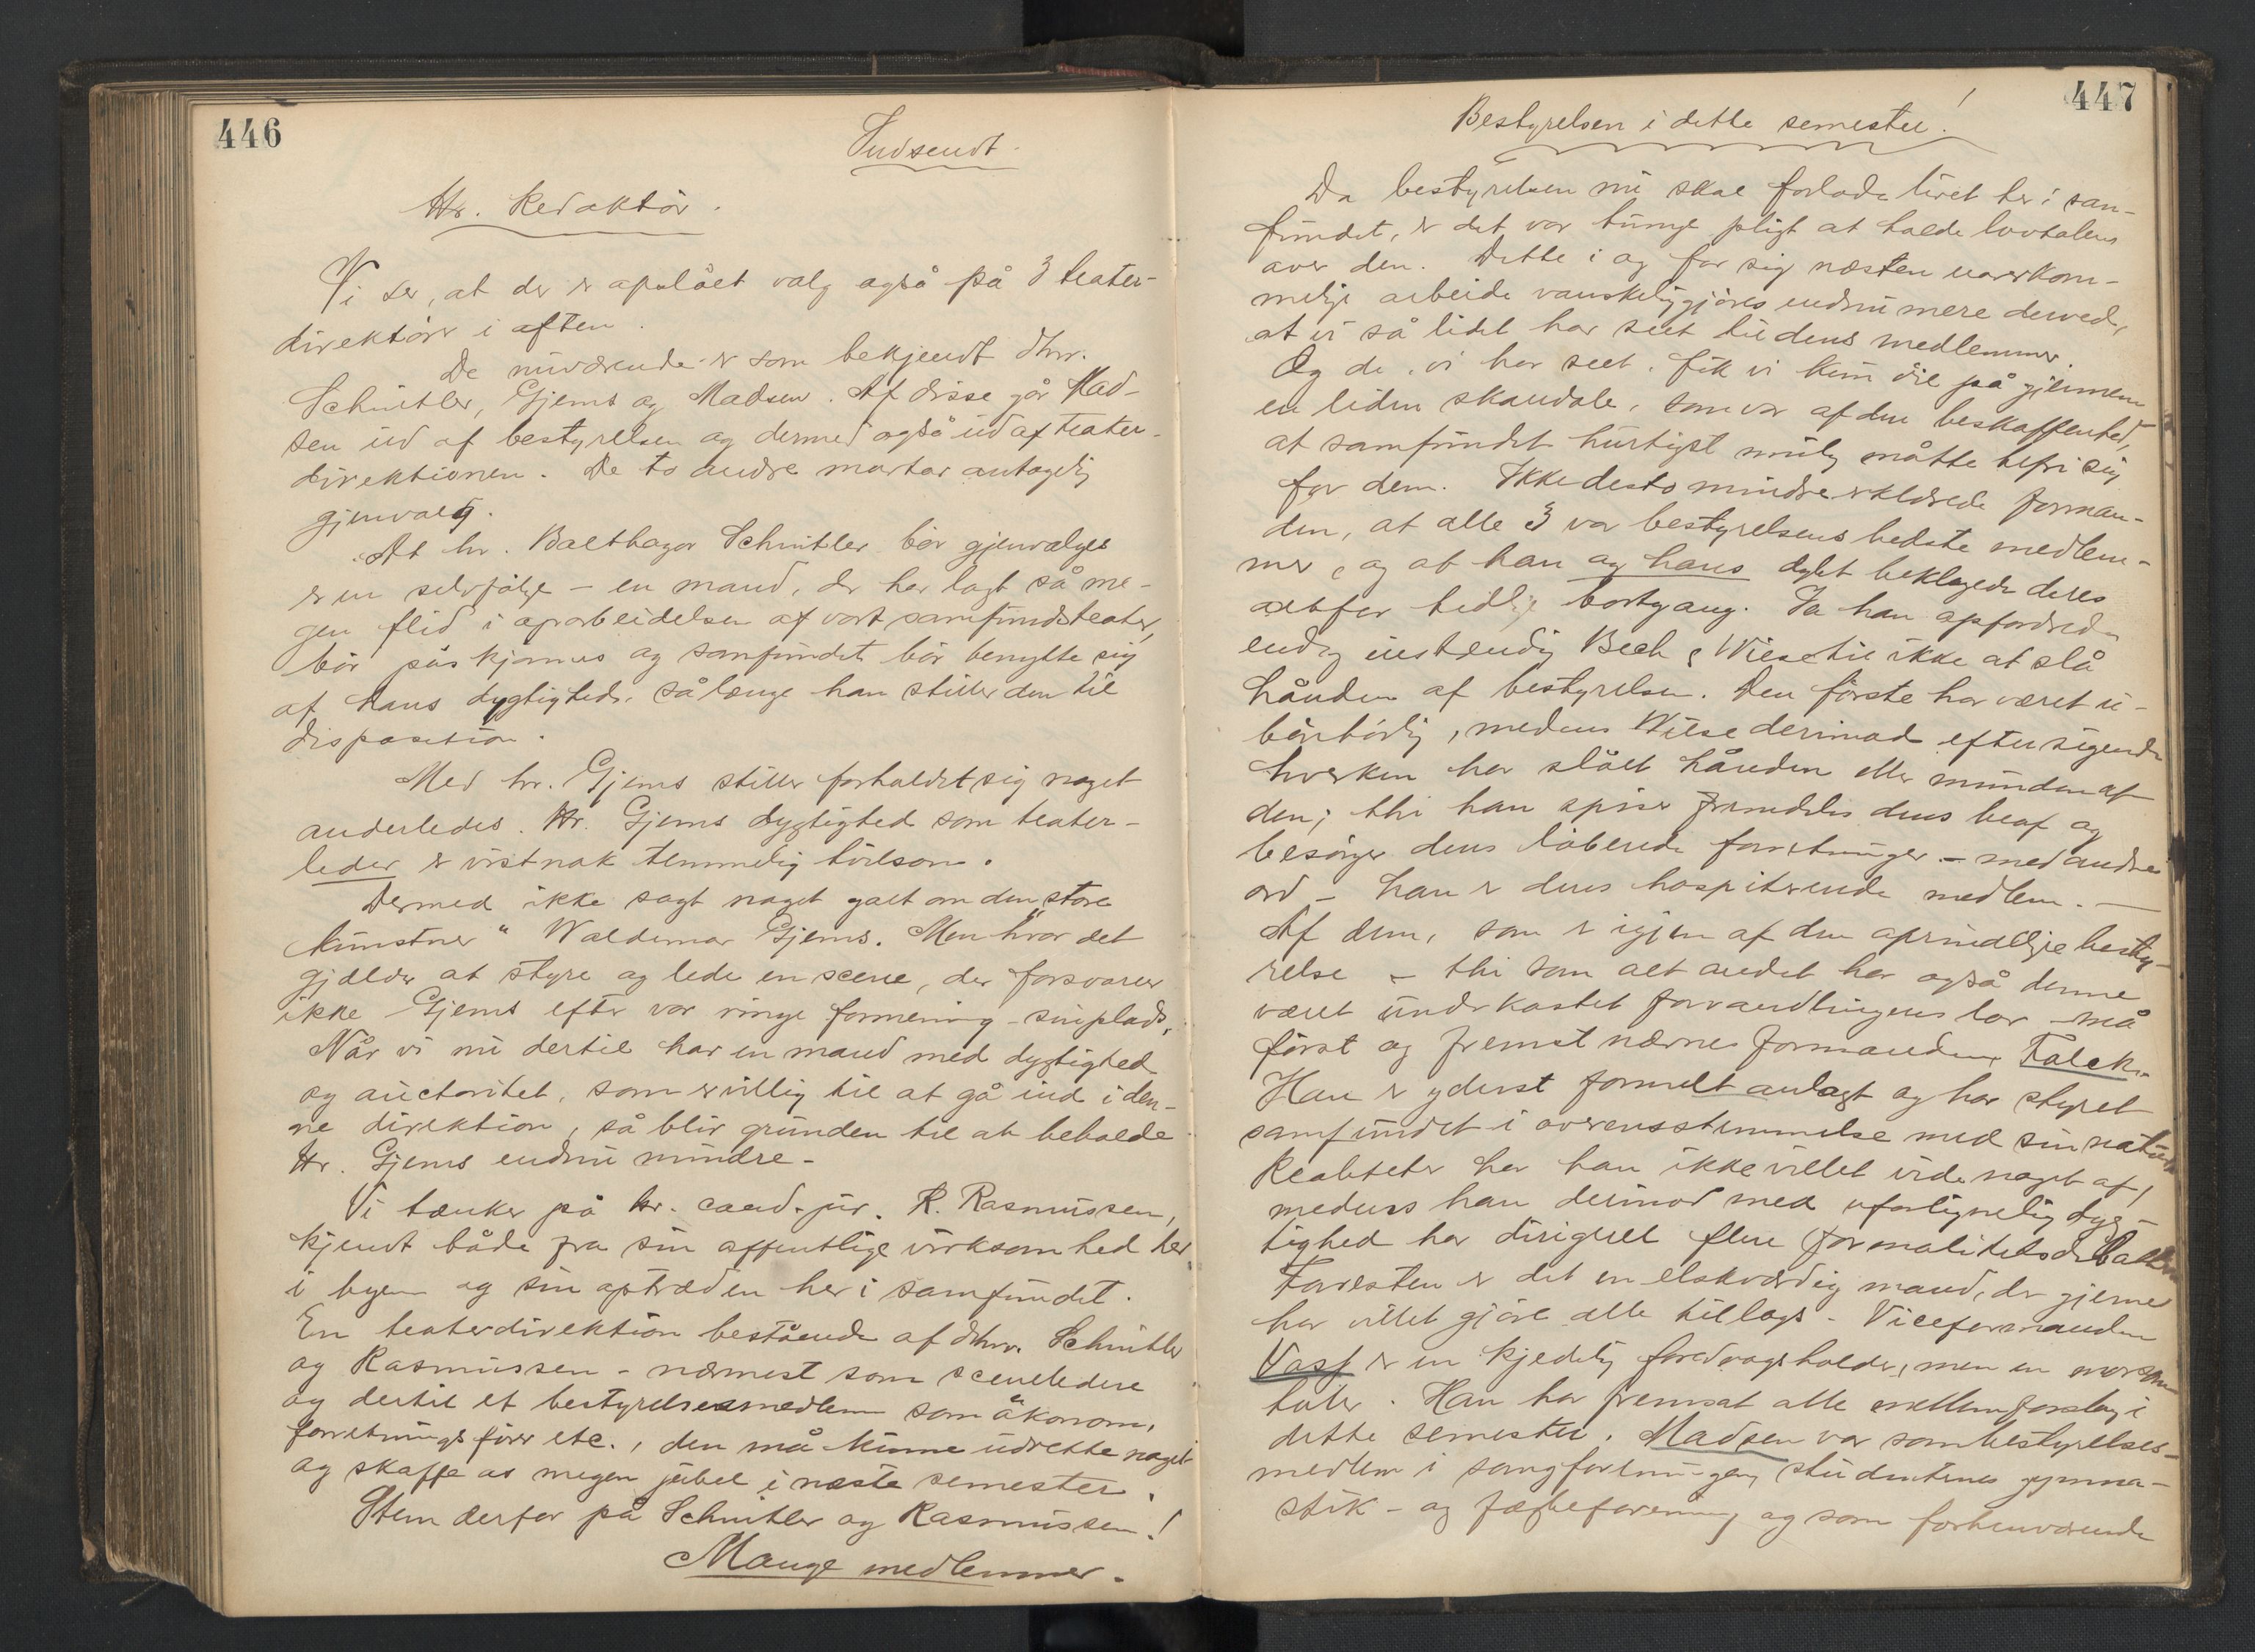 446
Indsendt.
Hr. Redaktör.
Vi ser, at der er opslået valg også på 3 teater-
direktörer i aften.
De nuværende er som bekjendt dhrr.
Schnitler, Gjems og Madsen. Af disse går Mad-
sen ud af bestyrelsen og dermed også ud af teater-
direktionen. De to andre mottar antagelig
gjenvalg.
At hr. Balthazar Schnitler bör gjenvælges
er en selvfölge – en mand, der har lagt så me-
gen flid i oparbeidelsen af vort samfundsteater,
bör påskjönnes og samfundet bör benytte sig
af hans dygtighed, sålænge han stiller den til
disposition.
Med hr. Gjems stiller forholdet sig noget
anderledes. Hr. Gjems dygtighed som teater-
leder er vistnok temmelig tvilsom.
Dermed ikke sagt noget galt om den "store
kunstner" Waldemar Gjems. Men hvor det
gjælder at styre og lede en scene, der forsvarer
ikke Gjems efter vor ringe formening sin plads.
Når vi nu dertil har en mand med dygtighed
og auctoritet, som er villig til at gå ind i den-
ne direktion, så blir grunden til at beholde
Hr. Gjems endnu mindre –
Vi tænker på hr. cand. jur. R. Rasmussen,
kjendt både fra sin offentlige virksomhed her
i byen og sin optræden her i samfundet.
En teaterdirektion bestående af dhrr. Schnitler
og Rasmussen – nærmest som sceneledere
og dertil et bestyrelsesmedlem som ökonom,
forretningsförer etc., den må kunne udrette noget
og skaffe os megen jubel i næste semester.
Stem derfor på Schnitler og Rasmussen!
Mange medlemmer.
447
Bestyrelsen i dette semester!
Da bestyrelsen nu skal forlade livet her i sam-
fundet, er det vor tunge pligt at holde lovtalen
over den. Dette i og for sig næsten uoverkom-
melige arbeide vanskeliggjöres endnu mere derved,
at vi så lidet har seet til dens medlemmer.
Og de, vi har seet, fik vi kun öie på gjennem
en liden skandale, som var af den beskaffenhed,
at samfundet hurtigst mulig måtte befri sig
for dem. Ikke desto mindre erklærede forman-
den, at alle 3 var bestyrelsens bedste medlem-
mer, og at han og hans dybt beklagede deres
altfor tidlige bortgang. Ja han opfordrede
endog instændig Bech & Wiese til ikke at slå
hånden af bestyrelsen. Den förste har været u-
bönhörlig, medens Wiese derimod eftersigende
hverken har slået hånden eller munden af
den; thi han spiser fremdeles dens beaf og
besörger dens löbende forretninger – med andre
ord – han er dens hospiterende medlem. –
Af dem, som er igjen af den oprindelige besty-
relse – thi som alt andet har også denne
været underkastet forvandlingens lov – må
först og fremst nævnes formanden, Falck.
Han er yderst formelt anlagt og har styret
samfundet i overensstemmelse med sin natur.
Realiteter har han ikke villet vide noget af,
medens han derimod med uforlignelig dyg-
tighed har dirigeret flere formalitetsdebatter.
Foresten er det en elskværdig mand, der gjerne
har villet gjöre alle tillags. Viceformanden
Vasf er en kjedelig foredragsholder, men en morsom
taler. Han har fremsat alle mellemforslag i
dette semester. Madsen var som bestyrelses-
medlem i sangforeningen, studenternes gymna-
stik- og fægteforening og som forhenværende